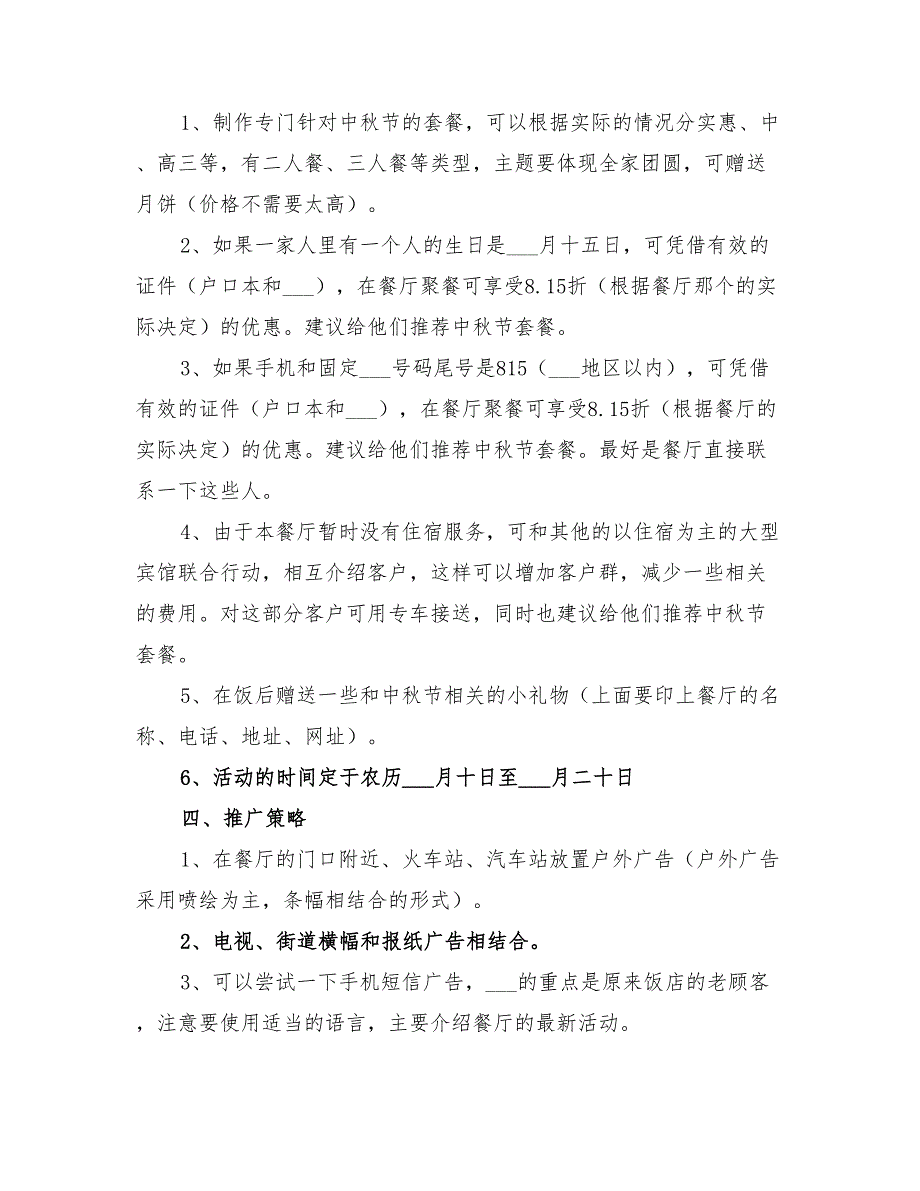 1、制作专门针对中秋节的套餐，可以根据实际的情况分实惠、中
、高三等，有二人餐、三人餐等类型，主题要体现全家团圆，可赠送
月饼（价格不需要太高）。
2、如果一家人里有一个人的生日是___月十五日，可凭借有效的
证件（户口本和___），在餐厅聚餐可享受8.15折（根据餐厅那个的实
际决定）的优惠。建议给他们推荐中秋节套餐。
3、如果手机和固定___号码尾号是815（___地区以内），可凭借
有效的证件（户口本和___），在餐厅聚餐可享受8.15折（根据餐厅的
实际决定）的优惠。建议给他们推荐中秋节套餐。最好是餐厅直接联
系一下这些人。
4、由于本餐厅暂时没有住宿服务，可和其他的以住宿为主的大型
宾馆联合行动，相互介绍客户，这样可以增加客户群，减少一些相关
的费用。对这部分客户可用专车接送，同时也建议给他们推荐中秋节
套餐。
5、在饭后赠送一些和中秋节相关的小礼物（上面要印上餐厅的名
称、电话、地址、网址）。
6、活动的时间定于农历___月十日至___月二十日
四、推广策略
1、在餐厅的门口附近、火车站、汽车站放置户外广告（户外广告
采用喷绘为主，条幅相结合的形式）。
2、电视、街道横幅和报纸广告相结合。
3、可以尝试一下手机短信广告，___的重点是原来饭店的老顾客
，注意要使用适当的语言，主要介绍餐厅的最新活动。